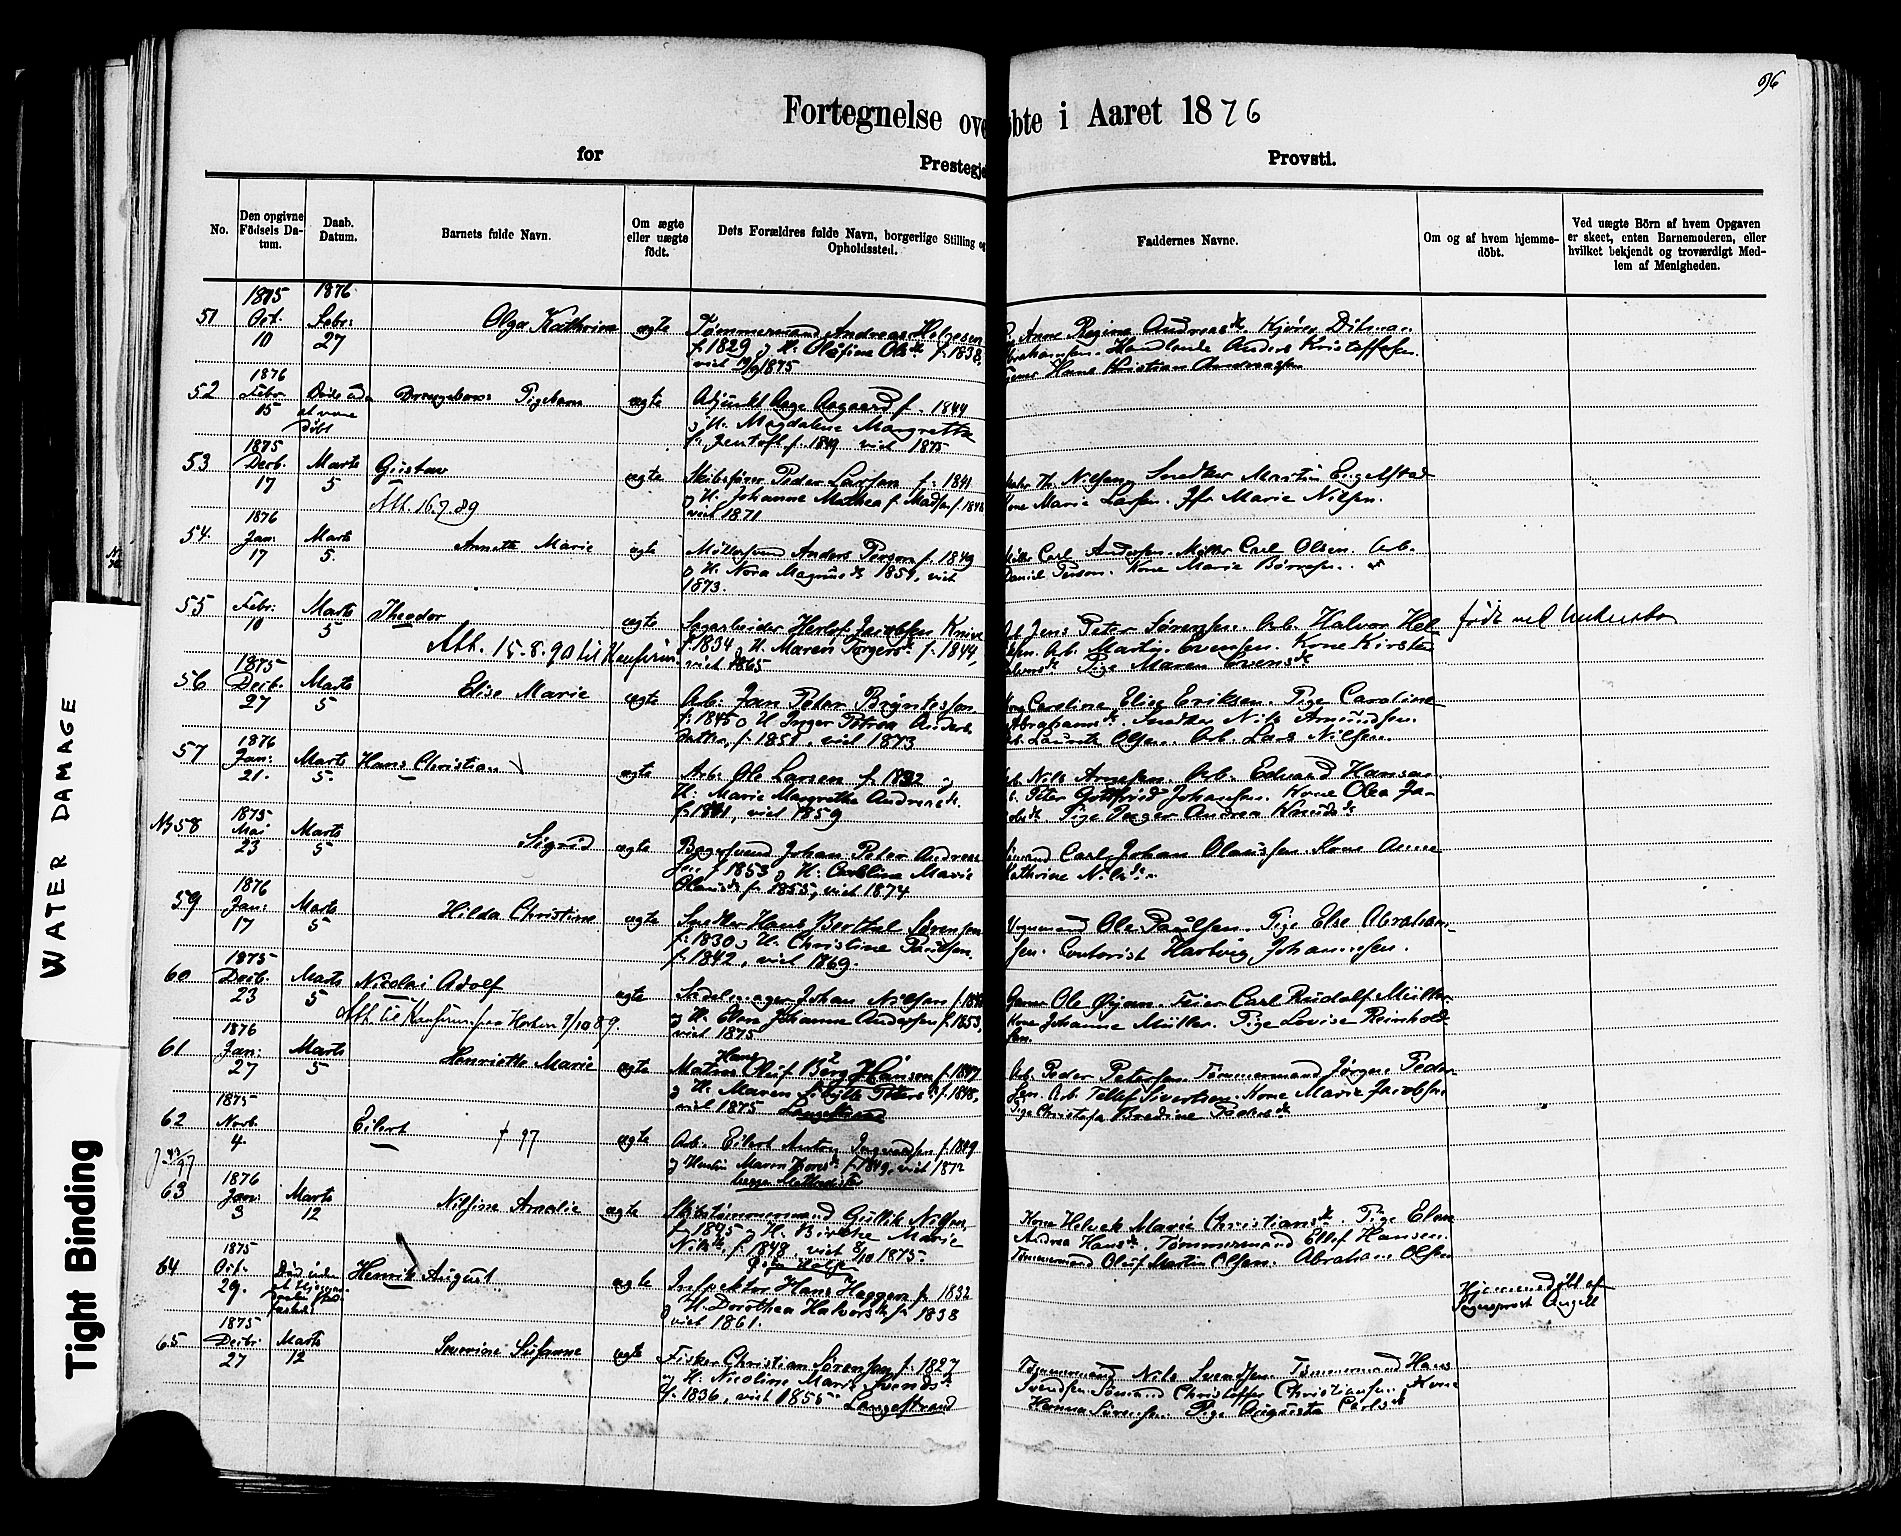 96
Fortegnelse ove øbte i Aaret 1876
for Prestegje Provsti.
No.
Den opgivne Födsels Da-tum.
Daab. Datum.
Barnets fulde Navn.
Om ægte eller uægte födt.
Dets Forældres fulde Navn, borgerlige Stilling og Opholdssted.
Faddernes Navne.
Om og af hvem hjemme-döbt.
Ved uægte Börn af hvem Opgaven er skeet, enten Barnemoderen, eller hvilket bekjendt og troværdigt Med-lem af Menigheden.
1875 1876
51 Oct. 10 Febr: 27 Olga Kathrine ægte Tømmermand Andreas Helgesen
f. 1829 og H. Olufine Olsdr f. 1838,
viet 1875
Anne Regine Andreasdr Kjører Ditman
Abrahamsen. Handlende Anders Kristoffersen.
Hans Kristian Andreassen
1876
52 Febr 15 Døde uden at være døbt Drengebarn: Pigebarn ægte Adjunkt Aage Aagaard f. 1844
og H. Magdalene Margrethe
f. 1849 viet 1875
1875
53 Decb. 17 Marts 5 Gustav ægte Skibsfører Peder Larsen f. 1841
Att. 16.9.89
og H. Johanne Mathea f. Madsen f. 1848
viet 1871
Th. Nilsen. Snedker Martin Engelstad
Kone Marie Larsen. Jfr Marie Nilsen.
1876
54. Jan: 17 Marts 5. Annette Marie ægte Møllersvend Anders Person f. 1849
og H. Nora Magnusdr 1851, viet
1873.
Carl Andersen. Møller Carl Olsen. Arb.
Daniel Person. Kone Marie Børresen.
55 Febr: 10 Marts 5 Theodor ægte Sagarbeider Herlof Jacobsen
Att. 15.8.90 til Konfirm.
f. 1834 og H. Maren Torgersdr f. 1844,
viet 1865
Jens Peter Sørensen. Arb. Halvor Hel-
Arb. Martin Evensen. Kone Kirstine
Pige Maren Evensdr
født ved
1875
56 Decb: 27 Marts 5 Elise Marie ægte Arb: Jan Petter Bryntesson
f. 1845 og H. Inger Petrea Anders
datter, f. 1851, viet 1873
Caroline Elise Eriksen. Pige Caroline
Abrahamsdr. Snedker Nils Amundsen.
Lauritz Olsen. Arb. Lars Nilsen.
1876
57 Jan: 21. Marts 5 Hans Christian ægte Arb: Ole Larsen f. 1832 og
H. Marie Margrethe Andreasdr.
f. 1831, viet 1859
Nils Arnesen. Arb. Edvard Hansen
Peter Gottfried Johansen. Kone Olea Ja-
Pige Inger Andrea Knudsdr
1875
58 Mai 23 Marts 5 Sigrid ægte Bagersvend Johan Peter Andrea
sen f. 1853 og H. Caroline Marie
Olausdr f. 1855, viet 1874
Carl Johan Olaussen. Kone Anne
Kathrine Nilsdr.
1876
59 Jan: 17 Marts 5 Hilda Christine ægte Snedker Hans Berthel Sørensen
f. 1830 og H. Christine Paulsen
f. 1842, viet 1869.
Vognmand Ole Paulsen. Pige Else Abraham-
sen. Contorist Hartvig Johannesen.
1875
60 Decb. 23 Marts 5 Nicolai Adolf ægte Sadelmager Johan Nilsen f.
Att. til Konfirm. fra Horten 9/10 89.
og H. Elen Johanne Andersen f. 1853,
viet 1875
Garver Ole Feier Carl Rudolf Müller.
Kone Johanne Müller. Pige Lovise Reinhold-
sen.
1876
61 Jan: 27 Marts 5 Henriette Marie ægte Matros Hans Oluf Berg Hansen f. 1847
og H. Maren Sibylle Petersdr f. 1848,
viet 1875 Langestrand
Arb. Peder Petersen. Tømmermand Jørgen Peder-
sen. Arb. Tellef Sivertsen. Kone Marie Jacobsen
Pige Christofa Bredine Pedersdr
1875
62 Novb. 4. Eilert † 97 ægte Arb. Eilert Anton f. 1849
og Hustru Maren f. 1849, viet 1872
begge Methodister
1876
63 Jan: 3 Marts 12 Nilsine Amalie ægte Skibstømmermand Gullik Nilsen
f. 1845 og H. Birthe Marie
Nilsdr, f. 1848. viet 8/10 1875.
Kone Helvek Marie Christiansdr. Pige Elen
Andrea Hansdr. Tømmermand Ellef Hansen.
Tømmermand Oluf Martin Olsen. Abraham Olsen
1875
64 Oct. 29. Død inden Henrik August ægte Inspektør Hans Haggern f. 1832
og H. Dorothea Halvorsdr f. 1838
viet 1861.
Hjemmedøbt af
Sogneprest Angell
1875
65 Decbr: 27 Marts 12 Severine Susanne ægte Fisker Christian Sørensen f. 1827
og H. Nicoline Marie Svendsdr
f. 1836, viet 1855 Langestrand
Tømmermand Nils Svendsen. Tømmermand Hans
Svendsen. Sømand Christoffer Christiansen. Kone
Hanna Sørensen. Pige Augusta Carlsdr
WATER DAMAGE
Tight Binding